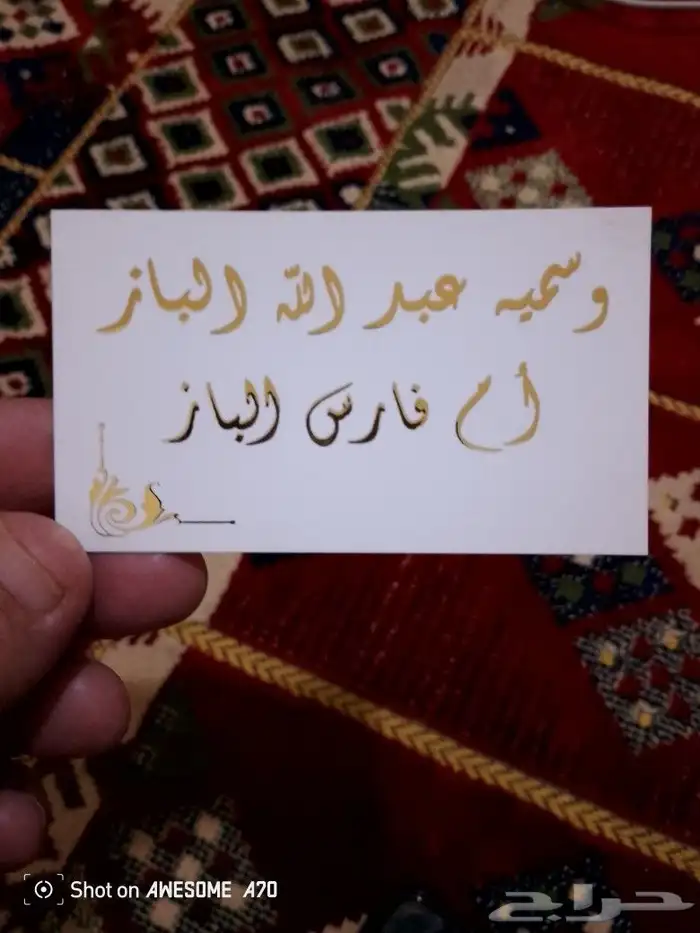 وسميه عبد الله الباز
أم فارس الباز
Shot on AWESOME A70
حراج